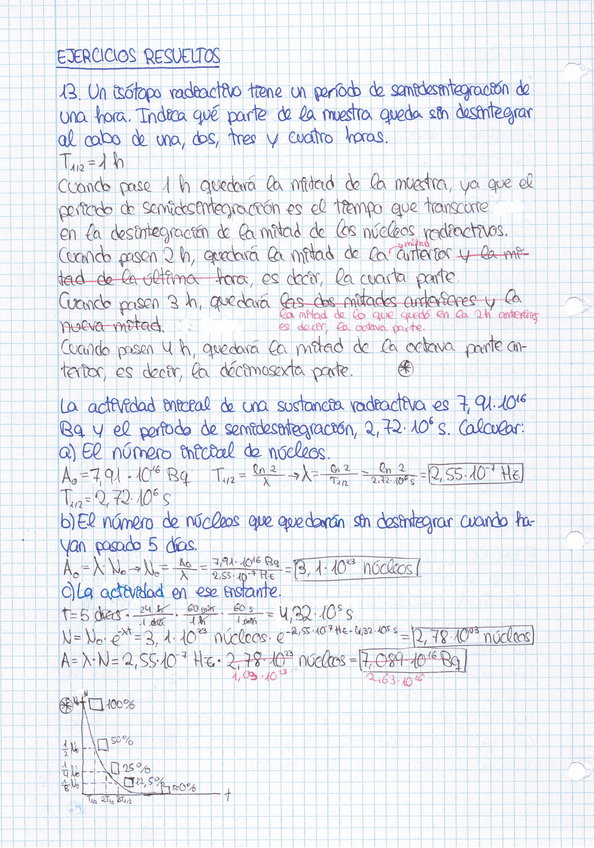 EJERCICIOS RESUELTOS
13. Un isótopo radiactivo tiene un período de semidesintegración de
una hora. Indica qué parte de la muestra queda sin desintegrar
al cabo de una, dos, tres y cuatro horas.
T1/2 = 1 h
Cuando pase 1 h quedará la mitad de la muestra, ya que el
período de semidesintegración es el tiempo que transcurre
en la desintegración de la mitad de los núcleos radiactivos.
mitad
Cuando pasen 2 h, quedará la mitad de la anterior y la mi-
tad de la última hora, es decir, la cuarta parte.
Cuando pasen 3 h, quedará las dos mitades anteriores y la
nueva mitad.
la mitad de lo que quedó en la 2h anteriores
es decir, la octava parte.
Cuando pasen 4 h, quedará la mitad de la octava parte an-
terior, es decir, la décimosexta parte. *
La actividad inicial de una sustancia radiactiva es 7,91·10¹⁶
Bq y el período de semidesintegración, 2,72·10⁶ s. Calcular:
a) El número inicial de núcleos.
A₀ = 7,91·10¹⁶ Bq T1/2 = ln 2/λ → λ = ln 2/T1/2 = ln 2/2,72·10⁶ s = 2,55·10⁻⁷ Hz
T1/2 = 2,72·10⁶ s
b) El número de núcleos que quedarán sin desintegrar cuando ha-
yan pasado 5 días.
A₀ = λ·N₀ → N₀ = A₀/λ = 7,91·10¹⁶ Bq/2,55·10⁻⁷ Hz = 3,1·10²³ núcleos
c) La actividad en ese instante.
t = 5 días · 24 h/1 día · 60 min/1 h · 60 s/1 min = 4,32·10⁵ s
N = N₀·e^λt = 3,1·10²³ núcleos·e^-2,55·10⁻⁷ Hz·4,32·10⁵ s = 2,78·10²³ núcleos
A = λ·N = 2,55·10⁻⁷ Hz · 2,78·10²³ núcleos = 7,089·10¹⁶ Bq
1,03·10²³ 2,63·10¹⁶
* N₀ N 100%
1/2 N₀ 50%
1/4 N₀ 25%
1/8 N₀ 12,5% ≈0%
T1/2 2T1/2 3T1/2 t